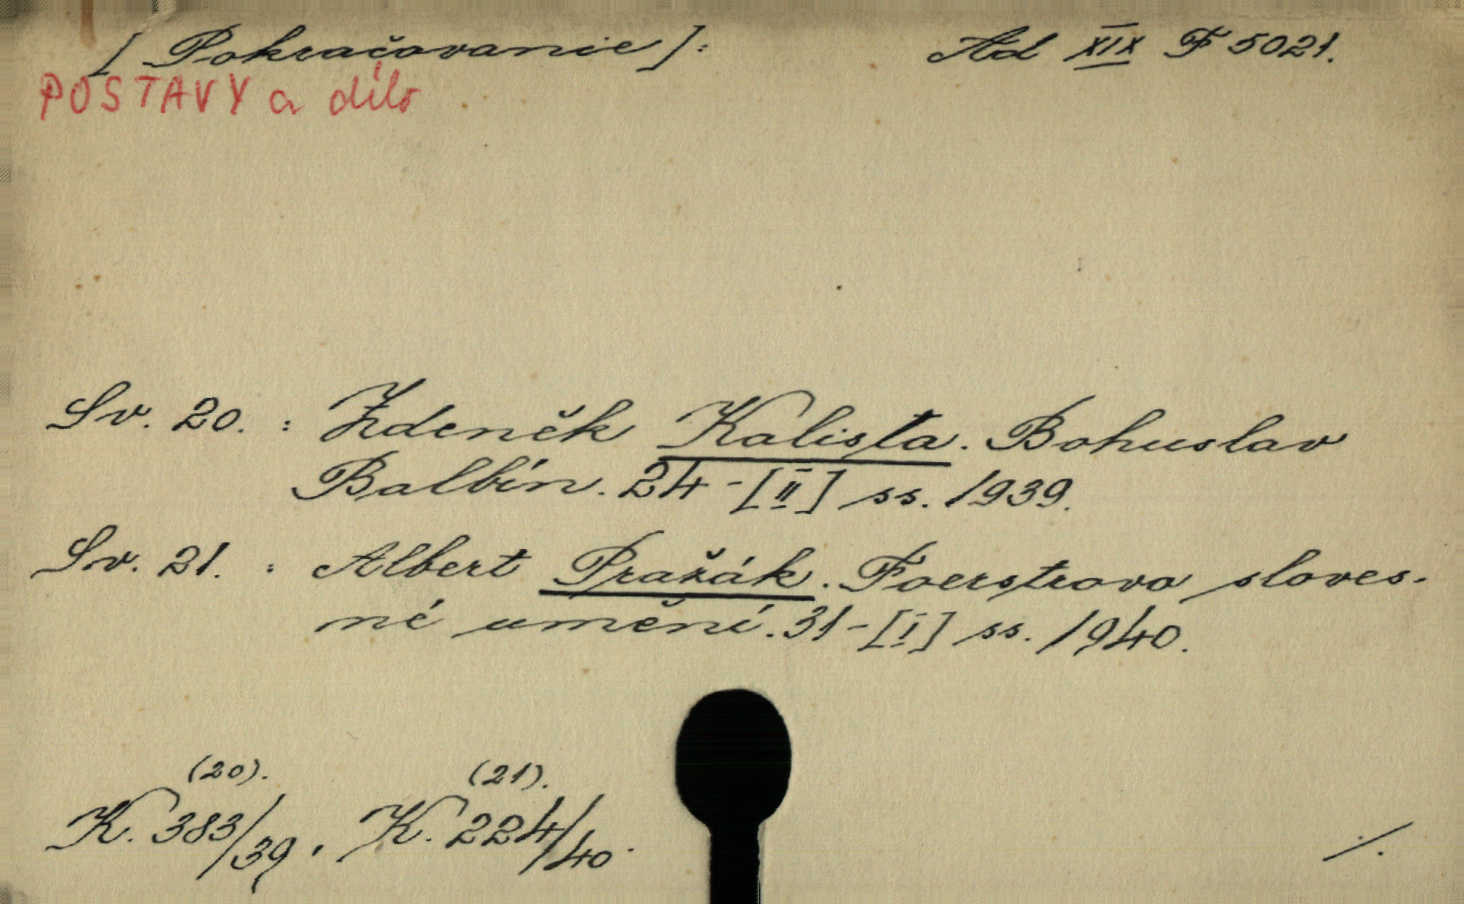 [Pokračovanie]: Ad XIX F 5021.
POSTAVY a dílo
Sv. 20. : Zdeněk Kalista. Bohuslav
Balbín. 24-[II] ss. 1939.
Sv. 21. : Albert Pražák. Foerstrovo sloves-
né umění. 31-[I] ss. 1940.
(20). (21).
K. 383/39, K. 224/40.
./.